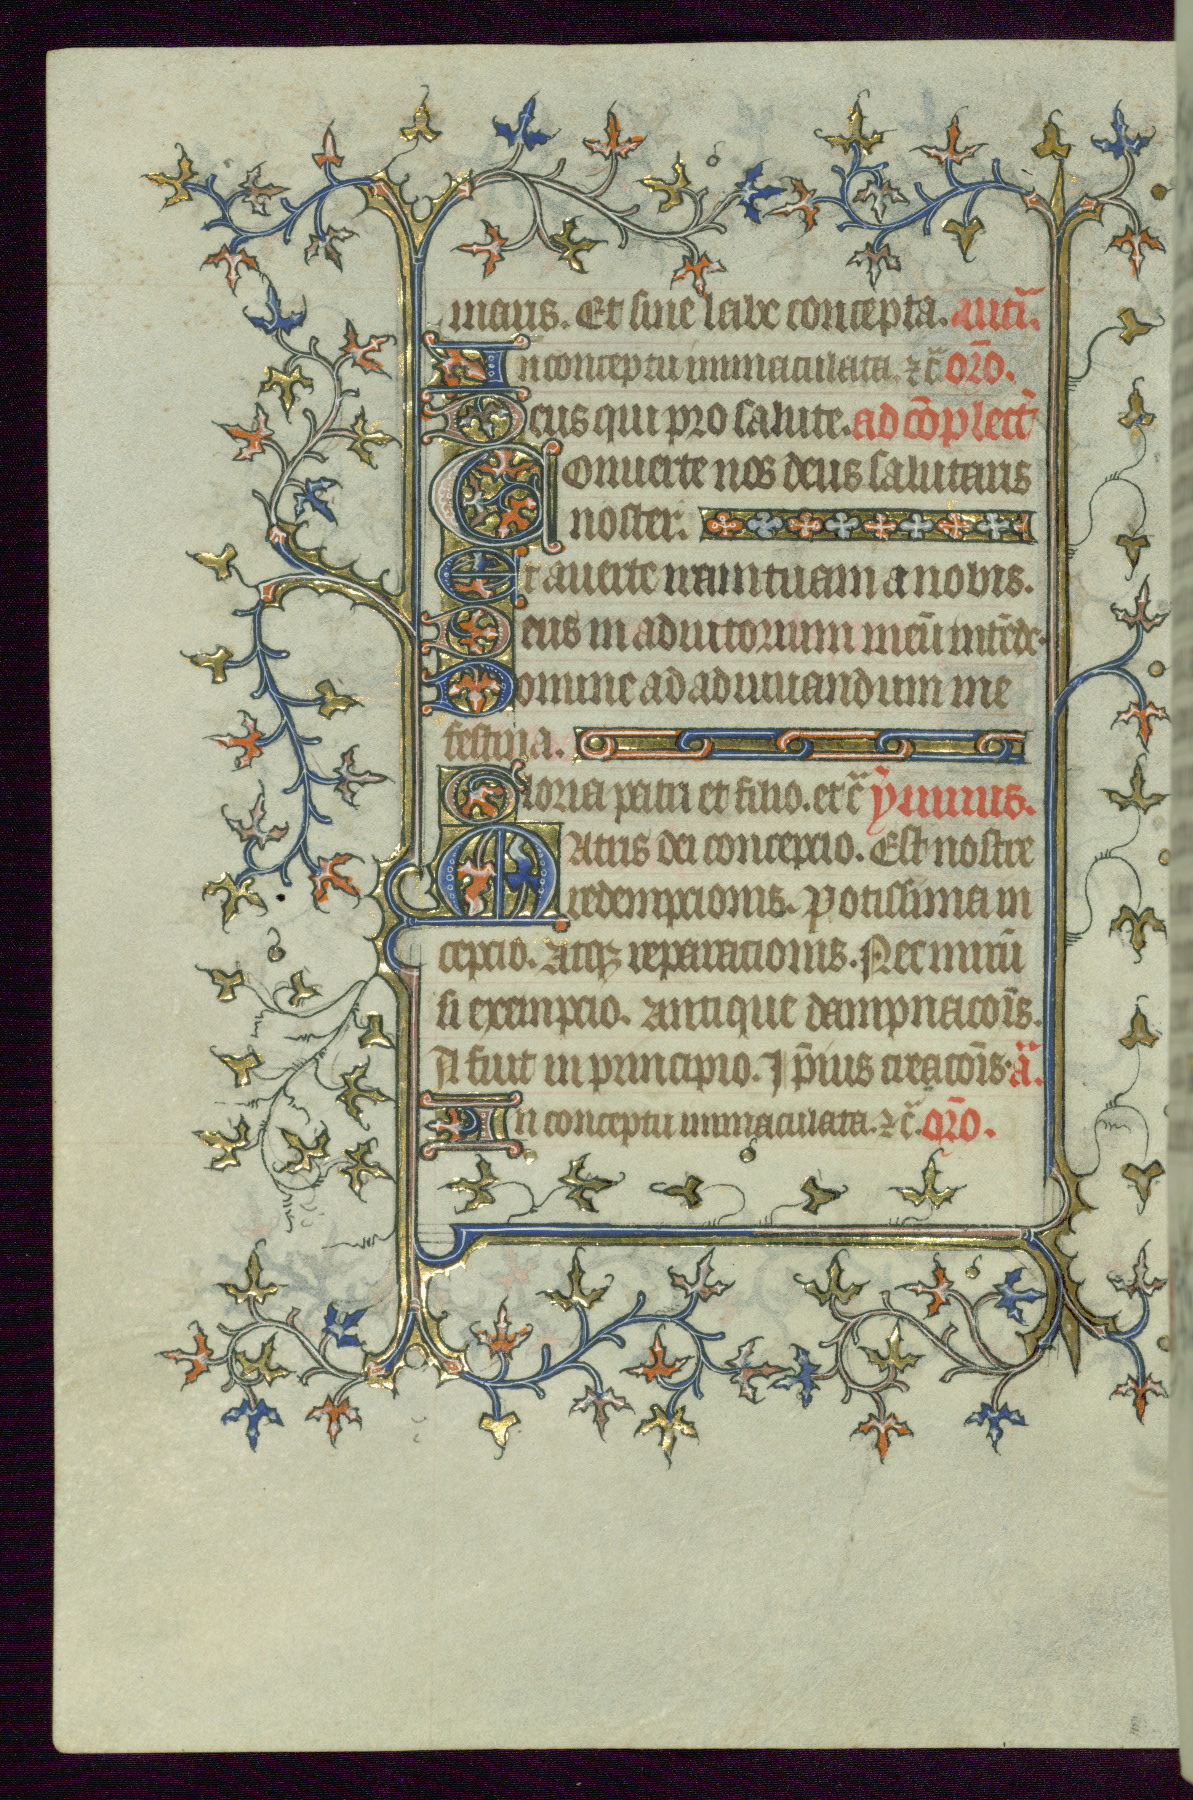 maris. Et sine labe concepta. antī.
In conceptu immaculata. ⁊ c̄ orō.
Deus qui pro salute. ad cōplect̄
Conuerte nos deus salutaris
noster.
Et auerte iram tuam a nobis.
Deus in adiutorium meū intēde.
Domine ad adiuuandum me
festina.
Gloria patri et filio. et c̄ ymnus.
Matris dei concepcio. Est nostre
redempcionis. Potissima in
cepcio. Atqꝫ reparacionis. Nec mirū
si exempcio. Antique dampnacoīs.
A fuit in principio. I p̄mius creacoīs. ā.
In conceptu immaculata. ⁊ c̄. orō.